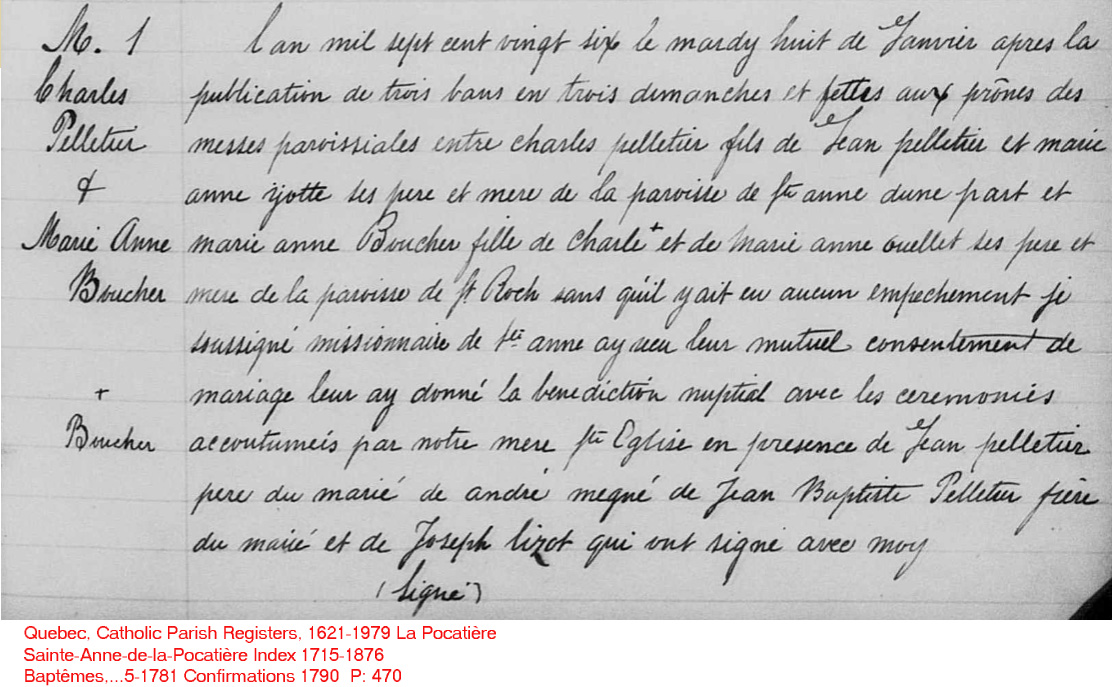 M. 1
Charles
Pelletier
&
Marie Anne
Boucher
+
Boucher
l'an mil sept cent vingt six le mardy huit de Janvier apres la
publication de trois bans en trois dimanches et fettes aux prônes des
messes paroissiales entre charles pelletier fils de Jean pelletier et marie
anne yotte ses pere et mere de la paroisse de Ste anne dune part et
marie anne Boucher fille de charle + et de marie anne ouellet ses pere et
mere de la paroisse de St Roch sans qu'il y ait eu aucun empechement je
soussigné missionnaire de Ste anne ay recu leur mutuel consentement de
mariage leur ay donné la benediction nuptial avec les ceremonies
accoutumeis par notre mere Ste Eglise en presence de Jean pelletier
pere du marié de andré megné de Jean Baptiste Pelletier frère
du marié et de Joseph lizot qui ont signe avec moy
(Signé)
Quebec, Catholic Parish Registers, 1621-1979 La Pocatière
Sainte-Anne-de-la-Pocatière Index 1715-1876
Baptêmes,...5-1781 Confirmations 1790 P: 470